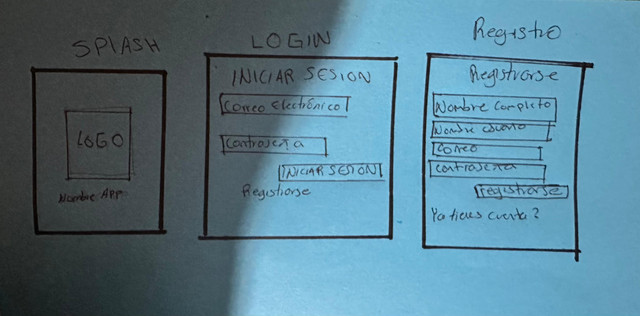 SPLASH
LOGO
Nombre APP
LOGIN
INICIAR SESION
Correo Electrónico
Contraseña
INICIAR SESION
Registrarse
Registro
Registrarse
Nombre Completo
Nombre usuario
Correo
Contraseña
registrarse
Ya tienes cuenta?